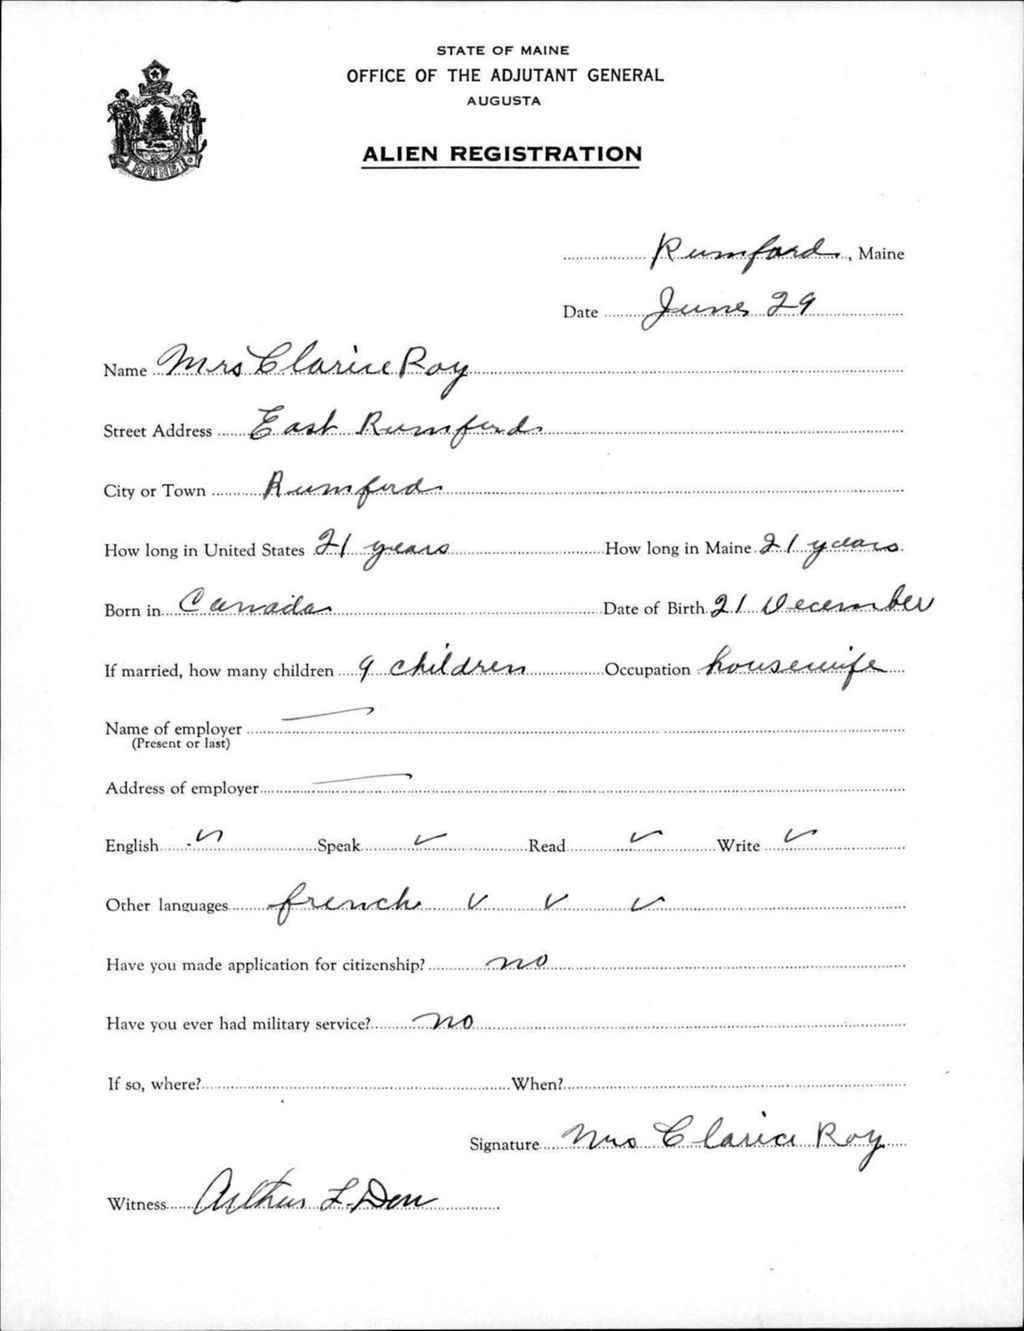 STATE OF MAINE
OFFICE OF THE ADJUTANT GENERAL
AUGUSTA
ALIEN REGISTRATION
MAINE
Rumford, Maine
Date June 29
Name Mrs Clarice Roy
Street Address East Rumford
City or Town Rumford
How long in United States 21 years How long in Maine 21 years
Born in Canada Date of Birth 21 December
If married, how many children 9 children Occupation housewife
Name of employer —
(Present or last)
Address of employer —
English ✓ Speak ✓ Read ✓ Write ✓
Other languages french ✓ ✓ ✓
Have you made application for citizenship? no
Have you ever had military service? no
If so, where? When?
Signature Mrs Clarice Roy
Witness Arthur L.